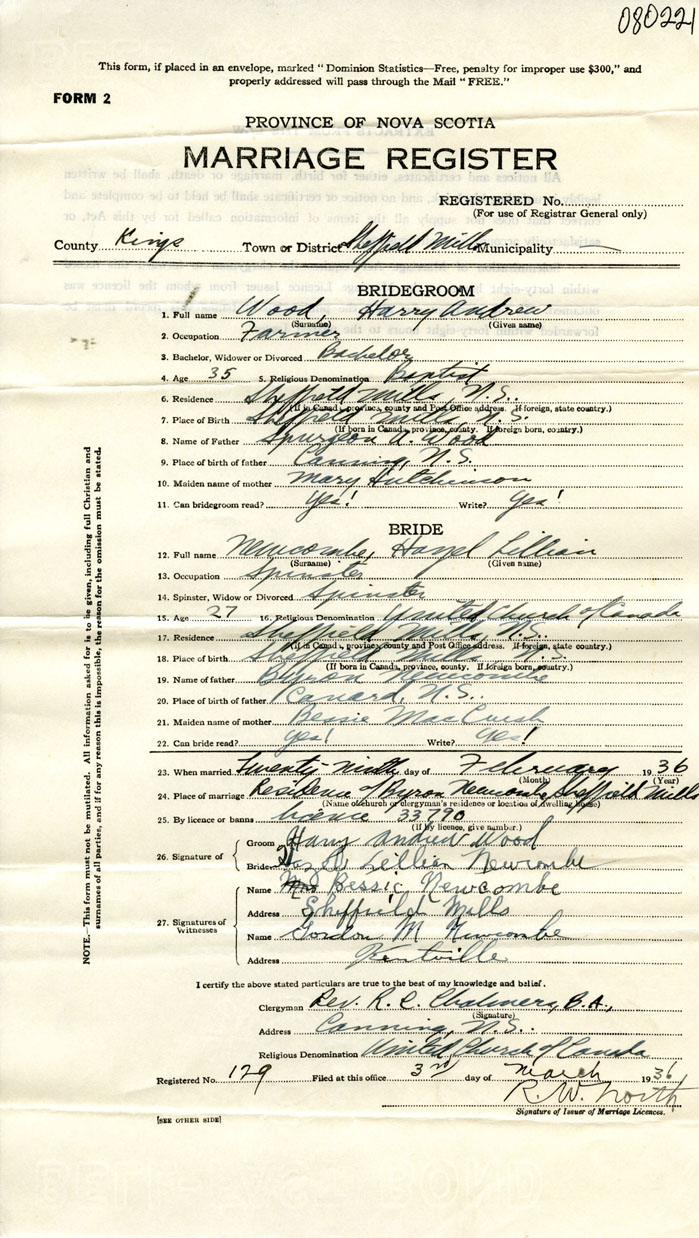 080221
This form, if placed in an envelope, marked "Dominion Statistics—Free, penalty for improper use $300," and
properly addressed will pass through the Mail "FREE."
FORM 2
PROVINCE OF NOVA SCOTIA
MARRIAGE REGISTER
REGISTERED No.
(For use of Registrar General only)
County Kings Town or District Sheffield Mills Municipality
BRIDEGROOM
1. Full name Wood, Harry Andrew
(Surname) (Given name)
2. Occupation Farmer
3. Bachelor, Widower or Divorced Bachelor
4. Age 35 5. Religious Denomination Baptist
6. Residence Sheffield Mills, N.S.
(If in Canada, province, county and Post Office address. If foreign, state country.)
7. Place of Birth Sheffield Mills, N.S.
(If born in Canada, province, county. If foreign born, country.)
8. Name of Father Spurgeon A. Wood
9. Place of birth of father Canning, N.S.
10. Maiden name of mother Mary Hutchinson
11. Can bridegroom read? Yes! Write? Yes!
BRIDE
12. Full name Newcombe, Hazel Lillian
(Surname) (Given name)
13. Occupation Spinster
14. Spinster, Widow or Divorced Spinster
15. Age 27 16. Religious Denomination United Church of Canada
17. Residence Sheffield Mills, N.S.
(If in Canada, province, county and Post Office address. If foreign, state country.)
18. Place of birth Sheffield Mills N.S.
(If born in Canada, province, county. If foreign born, country.)
19. Name of father Byron Newcombe
20. Place of birth of father Canard, N.S.
21. Maiden name of mother Bessie
22. Can bride read? Yes! Write? Yes!
23. When married Twenty ninth day of February 1936
(Month) (Year)
24. Place of marriage Residence of Byron Newcombe, Sheffield Mills
(Name of church or clergyman's residence or location of dwelling house)
25. By licence or banns licence 33790
(If by licence, give number.)
26. Signature of
Groom Harry Andrew Wood
Bride Hazel Lillian Newcombe
27. Signatures of Witnesses
Name Mrs Bessie Newcombe
Address Sheffield Mills
Name Gordon M Newcombe
Address Kentville
I certify the above stated particulars are true to the best of my knowledge and belief.
Clergyman Rev. R. C. Chalmers, B.A.,
(Signature)
Address Canning, N.S.
Religious Denomination United Church of Canada
Registered No. 129 Filed at this office 3rd day of March 1936
R.W. North
Signature of Issuer of Marriage Licences.
[SEE OTHER SIDE]
NOTE.—This form must not be mutilated. All information asked for is to be given, including full Christian and
surnames of all parties, and if for any reason this is impossible, the reason for the omission must be stated.